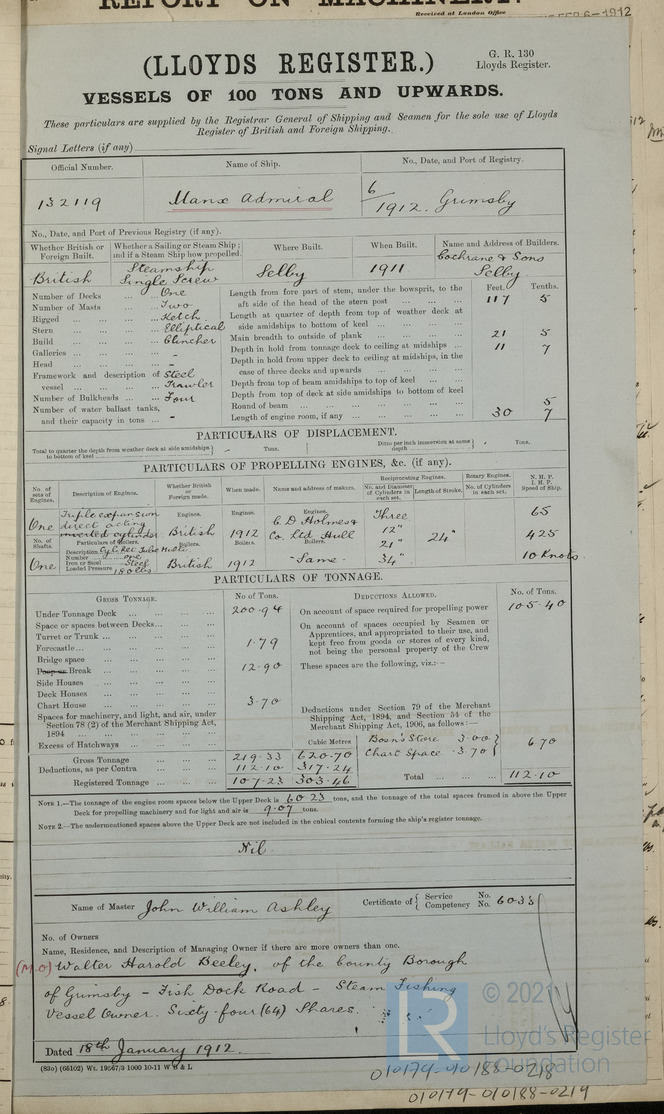 REPORT ON MACHINERY.
Received at London Office
FEB 6-1912
(LLOYDS REGISTER.)
G. R. 130
Lloyds Register.
VESSELS OF 100 TONS AND UPWARDS.
These particulars are supplied by the Registrar General of Shipping and Seamen for the sole use of Lloyds
Register of British and Foreign Shipping.
Signal Letters (if any)
Official Number. Name of Ship. No., Date, and Port of Registry.
132119 Manx Admiral 6/1912. Grimsby
No., Date, and Port of Previous Registry (if any).
Whether British or Foreign Built. Whether a Sailing or Steam Ship; and if a Steam Ship how propelled. Where Built. When Built. Name and Address of Builders.
British Steamship Single Screw Selby 1911 Cochrane & Sons Selby
Feet. Tenths.
Number of Decks ... One
Number of Masts ... Two
Rigged ... Ketch
Stern ... Elliptical
Build ... Clincher
Galleries ... -
Head ... -
Framework and description of vessel ... Steel Trawler
Number of Bulkheads ... Four
Number of water ballast tanks, and their capacity in tons ... -
Length from fore part of stem, under the bowsprit, to the aft side of the head of the stern post ... 117 5
Length at quarter of depth from top of weather deck at side amidships to bottom of keel ...
Main breadth to outside of plank ... 21 5
Depth in hold from tonnage deck to ceiling at midships ... 11 7
Depth in hold from upper deck to ceiling at midships, in the case of three decks and upwards ...
Depth from top of beam amidships to top of keel ...
Depth from top of deck at side amidships to bottom of keel
Round of beam ... 5
Length of engine room, if any ... 30 7
PARTICULARS OF DISPLACEMENT.
Total to quarter the depth from weather deck at side amidships to bottom of keel - Tons. Ditto per inch immersion at same depth - Tons.
PARTICULARS OF PROPELLING ENGINES, &c. (if any).
No. of sets of Engines. Description of Engines. Whether British or Foreign made. When made. Name and address of makers. Reciprocating Engines. Rotary Engines. N.H.P. I.H.P. Speed of Ship.
No. and Diameter of Cylinders in each set. Length of Stroke. No. of Cylinders in each set.
One Triple expansion direct acting inverted cylinder Engines. British Engines. 1912 Engines. C D Holmes & Co. Ltd Hull Three 12" 21" 34" 24" 65 425 10 Knots
No. of Shafts. Particulars of Boilers. Boilers. Boilers. Boilers.
One Description Cyl. Ret. Tube Multi
Number one
Iron or Steel Steel
Loaded Pressure 180 lbs British 1912 - Same -
PARTICULARS OF TONNAGE.
GROSS TONNAGE. No of Tons. DEDUCTIONS ALLOWED. No. of Tons.
Under Tonnage Deck ... 200.94
Space or spaces between Decks ...
Turret or Trunk ...
Forecastle ... 1.79
Bridge space ...
Poop or Break ... 12.90
Side Houses ...
Deck Houses ...
Chart House ... 3.70
Spaces for machinery, and light, and air, under Section 78 (2) of the Merchant Shipping Act, 1894 ...
Excess of Hatchways ...
Cubic Metres
Gross Tonnage ... 219.33 620.70
Deductions, as per Contra ... 112.10 317.24
Registered Tonnage ... 107.23 303.46
On account of space required for propelling power 105.40
On account of spaces occupied by Seamen or Apprentices, and appropriated to their use, and kept free from goods or stores of every kind, not being the personal property of the Crew
These spaces are the following, viz.:—
Deductions under Section 79 of the Merchant Shipping Act, 1894, and Section 54 of the Merchant Shipping Act, 1906, as follows:—
Bosn's Store 3.00
Chart Space 3.70 6.70
Total ... 112.10
NOTE 1.—The tonnage of the engine room spaces below the Upper Deck is 60.23 tons, and the tonnage of the total spaces framed in above the Upper
Deck for propelling machinery and for light and air is 9.07 tons.
NOTE 2.—The undermentioned spaces above the Upper Deck are not included in the cubical contents forming the ship's register tonnage.
Nil
Name of Master John William Ashley Certificate of Service Competency No. No. 6033
No. of Owners
Name, Residence, and Description of Managing Owner if there are more owners than one.
(M.O) Walter Harold Beeley, of the County Borough
of Grimsby - Fish Dock Road - Steam Fishing
Vessel Owner. Sixty-four (64) Shares.
Dated 18th January 1912.
(83o) (66102) Wt. 19567/3 1000 10-11 W B & L
LR
Lloyd's Register
Foundation
010179-010188-0218
010179-010188-0219